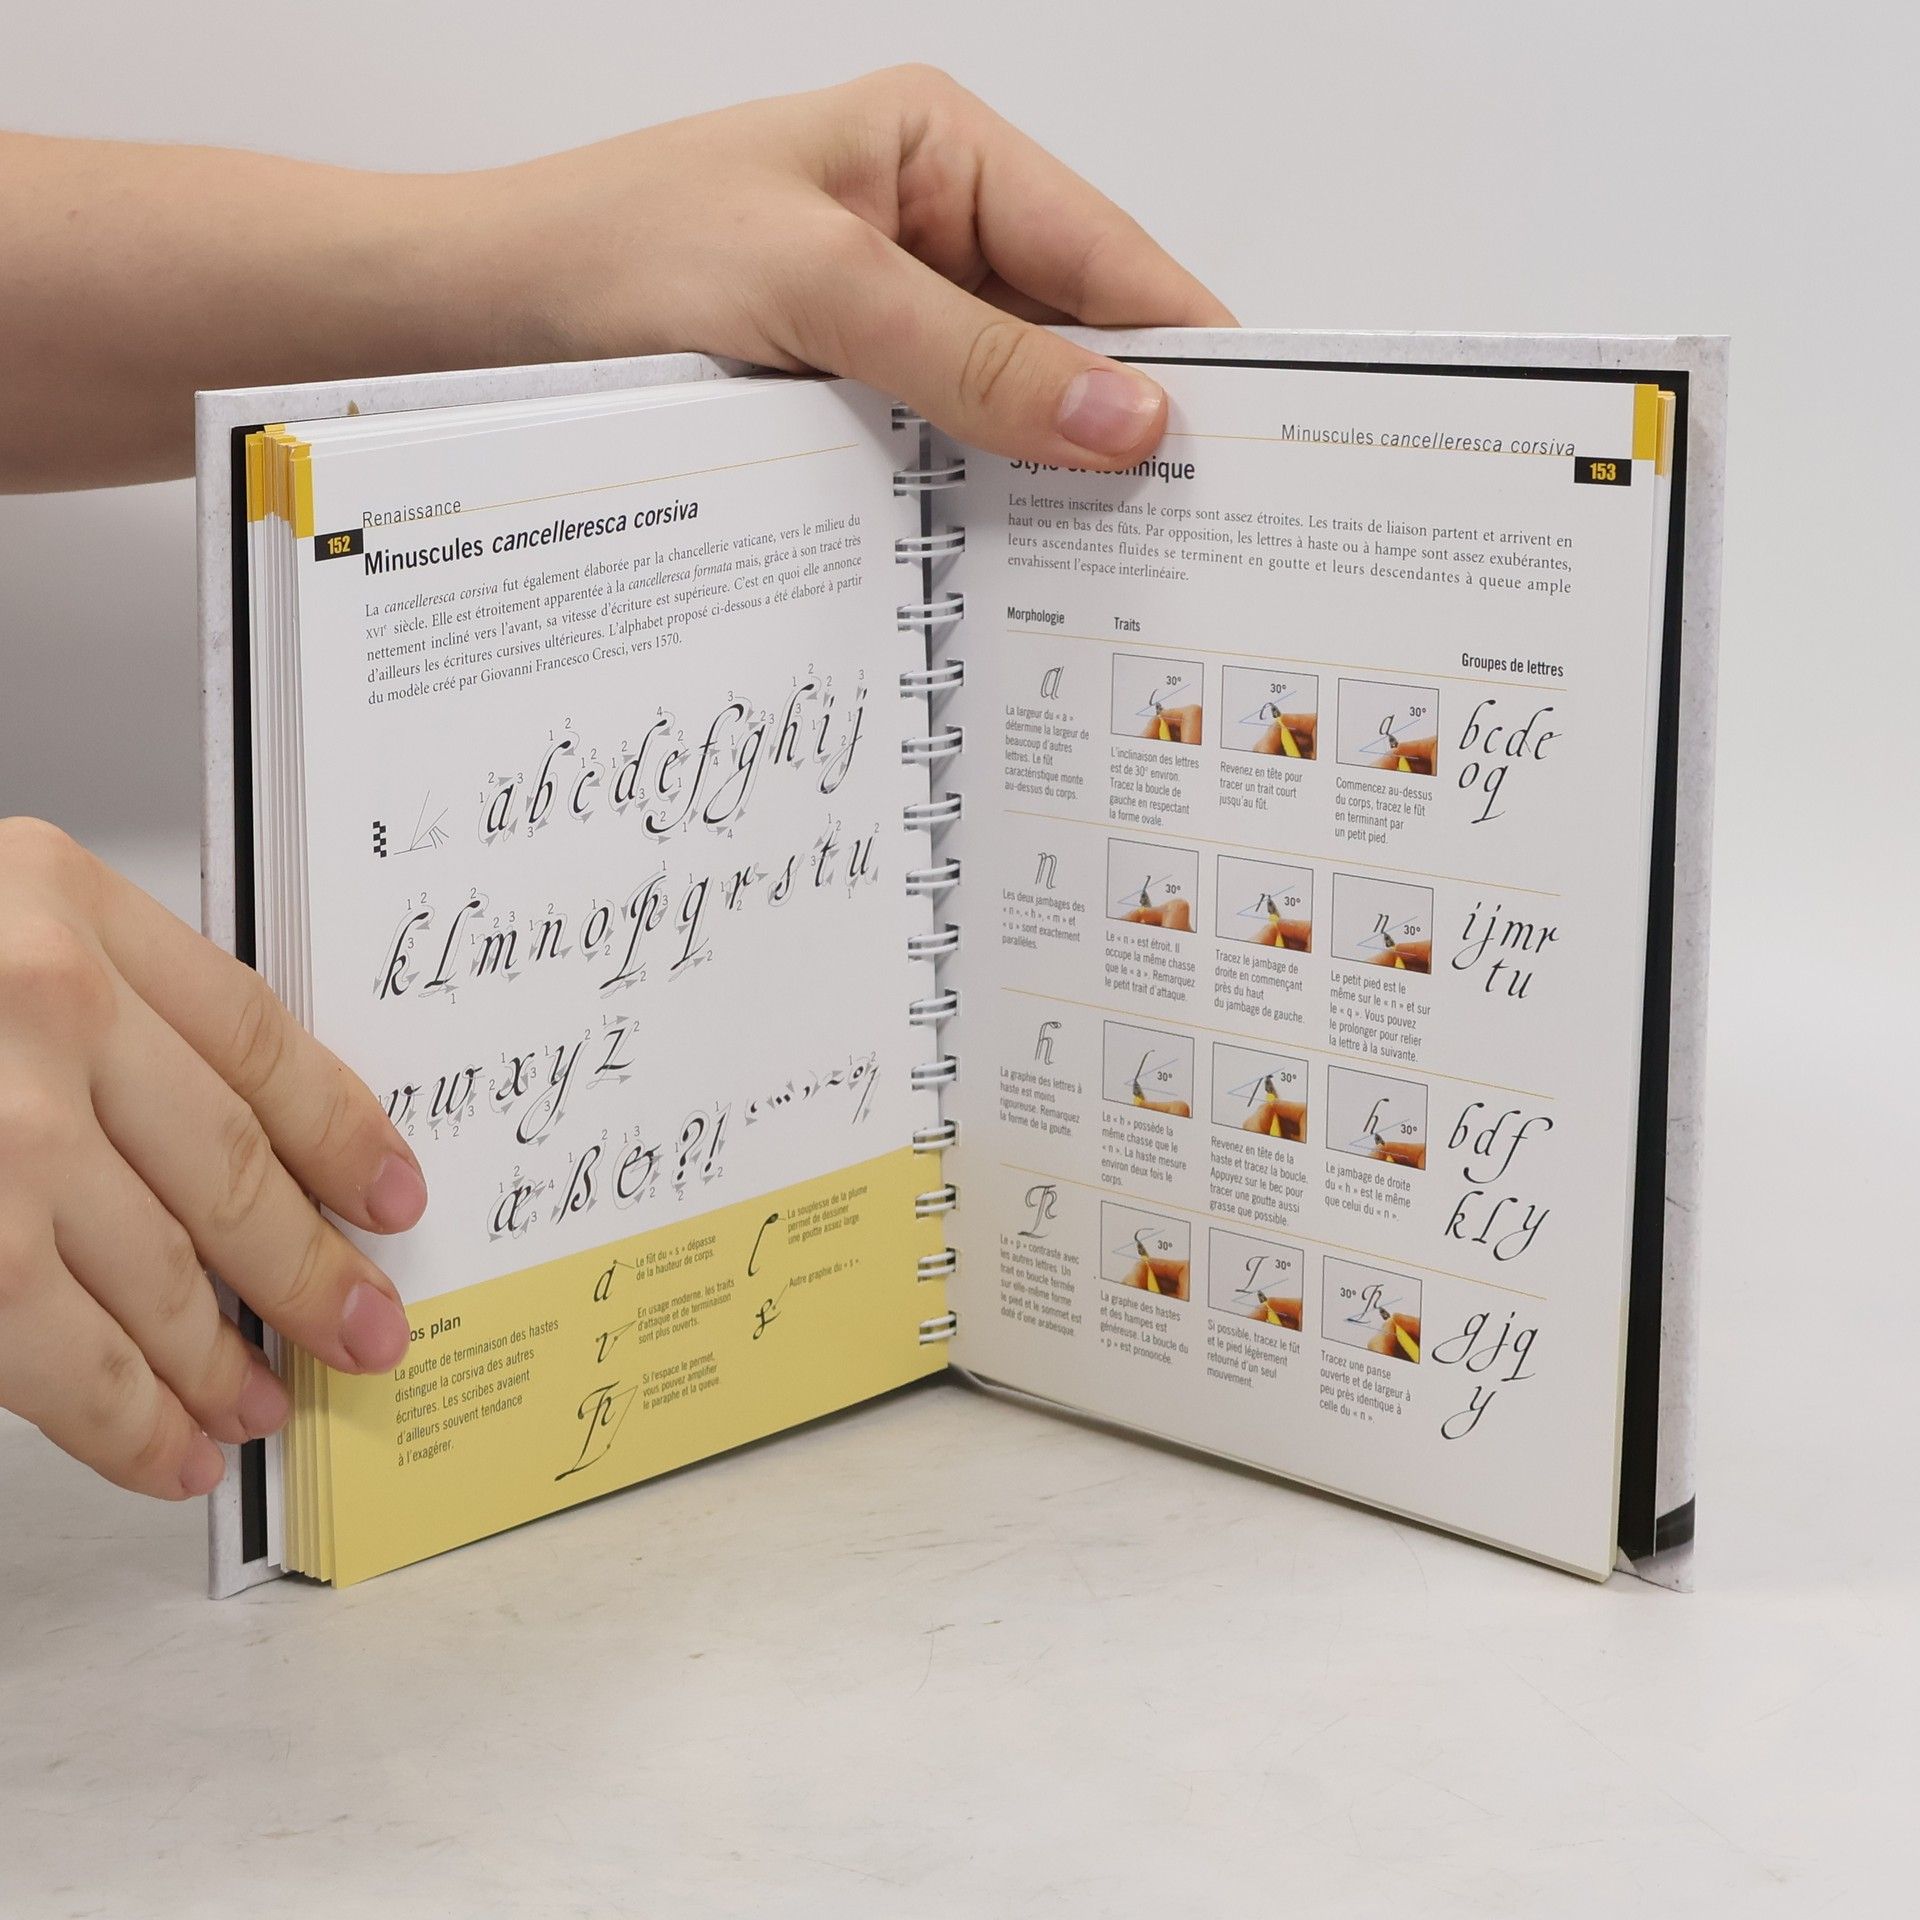 Renaissance
152
Minuscules cancelleresca corsiva
La cancelleresca corsiva fut également élaborée par la chancellerie vaticane, vers le milieu du
XVIe siècle. Elle est étroitement apparentée à la cancelleresca formata mais, grâce à son tracé très
nettement incliné vers l'avant, sa vitesse d'écriture est supérieure. C'est en quoi elle annonce
d'ailleurs les écritures cursives ultérieures. L'alphabet proposé ci-dessous a été élaboré à partir
du modèle créé par Giovanni Francesco Cresci, vers 1570.
a b c d e f g h i j
k l m n o p q r s t u
v w x y z
æ ß & ? !
os plan
La goutte de terminaison des hastes
distingue la corsiva des autres
écritures. Les scribes avaient
d'ailleurs souvent tendance
à l'exagérer.
Le fût du « s » dépasse
de la hauteur de corps.
En usage moderne, les traits
d'attaque et de terminaison
sont plus ouverts.
Si l'espace le permet,
vous pouvez amplifier
le paraphe et la queue.
La souplesse de la plume
permet de dessiner
une goutte assez large
Autre graphie du « s ».
Minuscules cancelleresca corsiva
153
Style et technique
Les lettres inscrites dans le corps sont assez étroites. Les traits de liaison partent et arrivent en
haut ou en bas des fûts. Par opposition, les lettres à haste ou à hampe sont assez exubérantes,
leurs ascendantes fluides se terminent en goutte et leurs descendantes à queue ample
envahissent l'espace interlinéaire.
Morphologie
Traits
Groupes de lettres
a
La largeur du « a »
détermine la largeur de
beaucoup d'autres
lettres. Le fût
caractéristique monte
au-dessus du corps.
30°
L'inclinaison des lettres
est de 30° environ.
Tracez la boucle de
gauche en respectant
la forme ovale.
30°
Revenez en tête pour
tracer un trait court
jusqu'au fût.
30°
Commencez au-dessus
du corps, tracez le fût
en terminant par
un petit pied.
bcde
oq
n
Les deux jambages des
« n », « h », « m » et
« u » sont exactement
parallèles.
30°
Le « n » est étroit. Il
occupe la même chasse
que le « a ». Remarquez
le petit trait d'attaque.
30°
Tracez le jambage de
droite en commençant
près du haut
du jambage de gauche.
30°
Le petit pied est le
même sur le « n » et sur
le « q ». Vous pouvez
le prolonger pour relier
la lettre à la suivante.
ijmr
tu
h
La graphie des lettres à
haste est moins
rigoureuse. Remarquez
la forme de la goutte.
30°
Le « h » possède la
même chasse que le
« n ». La haste mesure
environ deux fois le
corps.
30°
Revenez en tête de la
haste et tracez la boucle.
Appuyez sur le bec pour
tracer une goutte aussi
grasse que possible.
30°
Le jambage de droite
du « h » est le même
que celui du « n ».
bdf
kly
p
Le « p » contraste avec
les autres lettres. Un
trait en boucle fermée
sur elle-même forme
le pied et le sommet est
doté d'une arabesque.
30°
La graphie des hastes
et des hampes est
généreuse. La boucle du
« p » est prononcée.
30°
Si possible, tracez le fût
et le pied légèrement
retourné d'un seul
mouvement.
30°
Tracez une panse
ouverte et de largeur à
peu près identique à
celle du « n ».
gjq
y